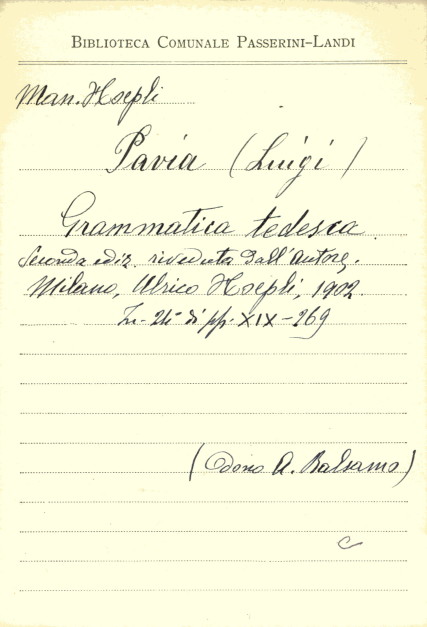 Biblioteca Comunale Passerini-Landi
Man. Hoepli
Pavia (Luigi)
Grammatica tedesca.
Seconda ediz. riveduta dall'Autore.
Milano, Ulrico Hoepli, 1902.
In-24° di pp. XIX-269
(dono A. Balsamo)
C